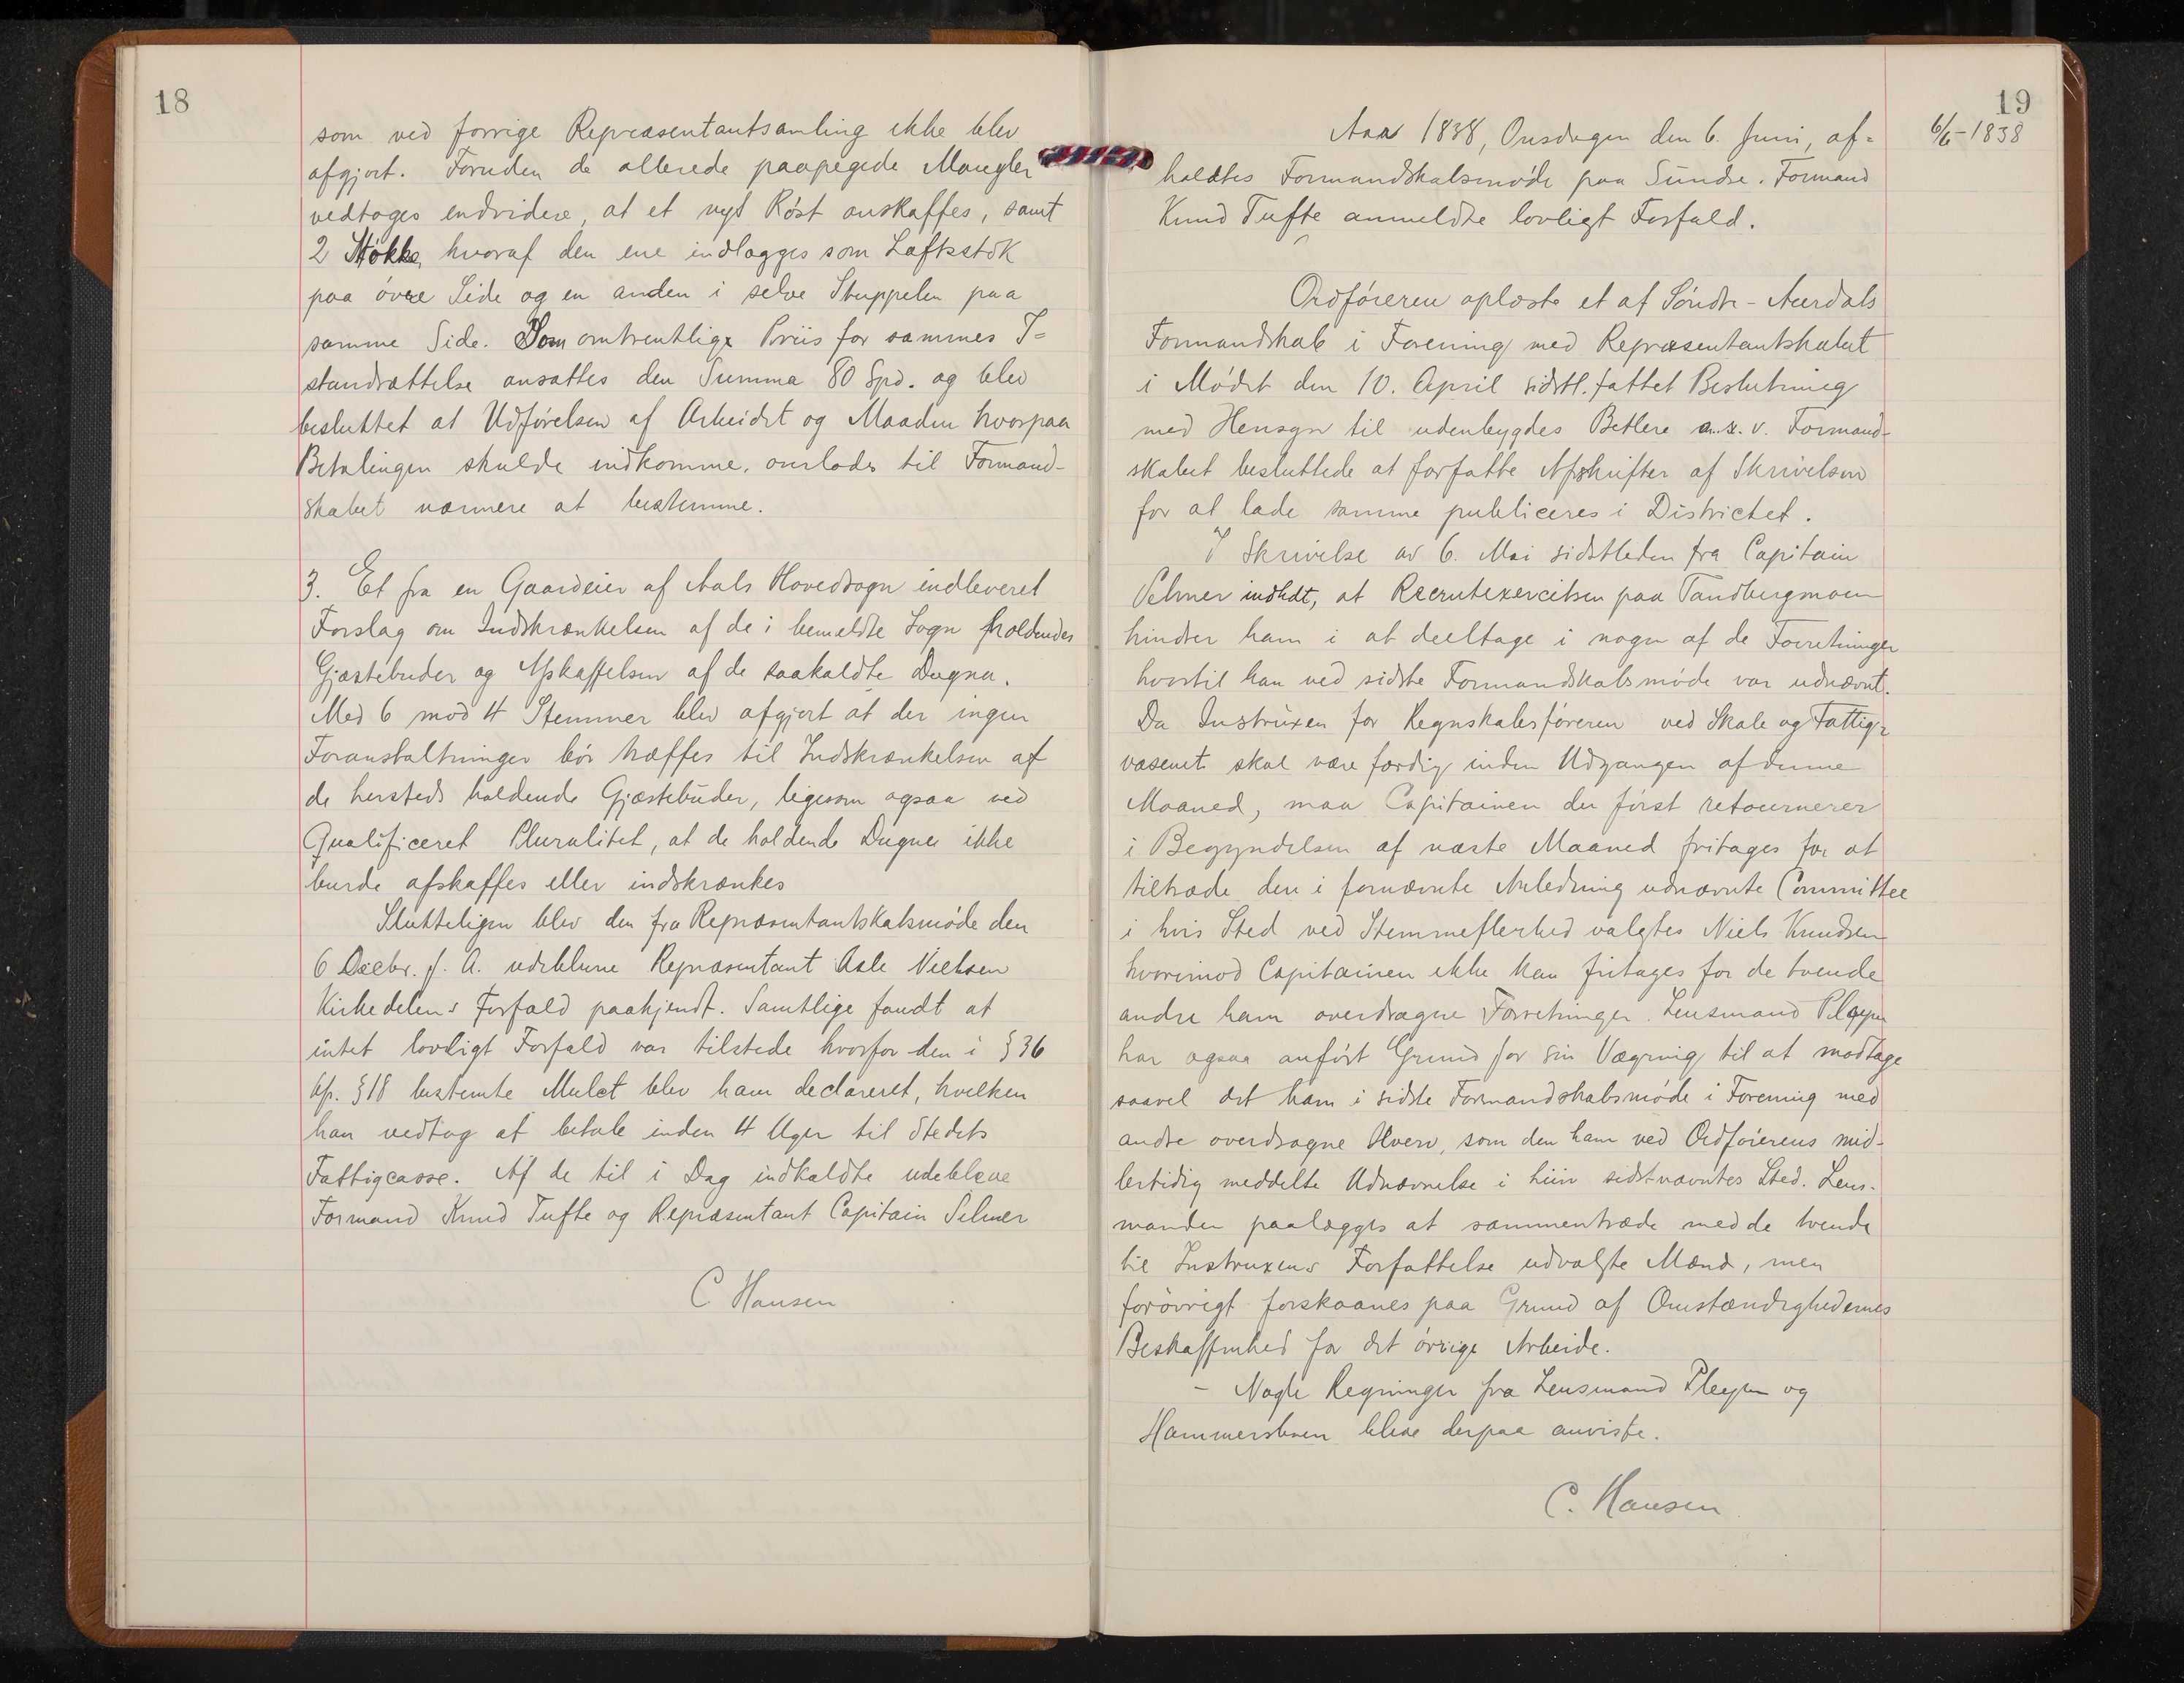 18
som ved forrige Repræsentantsamling ikke blev
afgjort. Foruden de allerede paapegede Mangler
vedtoges endvidere, at et nyt Röst anskaffes, samt
2 Stökke, hvoraf den ene indlægges som Laftsstok
paa övre Side og en anden i selve Stuppelen paa
samme Side. Som omtrentlige Priis for sammes I=
standsættelse ansattes den Summa 80 Spd. og blev
besluttet at Udförelsen af Arbeidet og Maaden hvorpaa
Betalingen skulde indkomme, overlodes til Formand-
skabet nærmere at bestemme.
3. Et fra en Gaardeier af Aals Hovedsogn indleveret
Forslag om Indskrænkelsen af de i bemeldte Sogn holdendes
Gjæstebuder og Afskaffelsen af de saakaldte Dugna.
Med 6 mod 4 Stemmer blev afgjort at der ingen
Foranstaltninger bör træffes til Indskrænkelsen af
de hersteds holdende Gjæstebuder, ligesom ogsaa ved
Qualificeret Pluralitet, at de holdende Dugner ikke
burde afskaffes eller indskrænkes
Slutteligen blev den fra Repræsentantskabsmöde den
6 Decbr. f. A. udeblevne Repræsentant Asle Nielsen
Kirkedelens Forfald paakjendt. Samtlige fandt at
intet lovligt Forfald var tilstede hvorfor den i § 36
kfr. § 18 bestemte Mulct blev ham declareret, hvilken
han vedtog at betale inden 4 Uger til Stedets
Fattigcasse. Af de til i Dag indkaldte udebleve
Formand Knud Tufte og Repræsentant Capitain Selmer
C. Hansen
19
6/6-1838
Aar 1838, Onsdagen den 6. Juni, af=
holdtes Formandskabsmöde paa Sundre. Formand
Knud Tufte anmeldte lovligt Forfald.
Ordföreren oplæste et af Söndre-Aurdals
Formandskab i Forening med Repræsentantskabet
i Mödet den 10. April sidstl. fattet Beslutning
med Hensyn til udenbygdes Betlere m. v. Formand-
skabet besluttede at forfatte Afskrifter af Skrivelsen
for at lade samme publiceres i Districtet.
I Skrivelse av 6. Mai sidstleden fra Capitain
Selmer indledt, at Recrutexercitsen paa Tandbergmoen
hindrer ham i at deeltage i nogen af de Forretninger
hvortil han ved sidste Formandskabsmöde var udnævnt.
Da Instruxen for Regnskabsföreren ved Skole og Fattig=
væsenet skal være færdig inden Udgangen af denne
Maaned, maa Capitainen der först retournerer
i Begyndelsen af næste Maaned fritages for at
tiltræde den i fornævnte Anledning udnævnte Committee
i hvis Sted ved Stemmeflerhed valgtes Niels Knudsen
hvorimod Capitainen ikke kan fritages for de tvende
andre ham overdragne Forretninger. Lensmand Pleym
har ogsaa anfört Grund for sin Vægring til at modtage
saavel det ham i sidste Formandskabsmöde i Forening med
andre overdragne Hverv, som den ham ved Ordförerens mid-
lertidig meddelte Udnævnelse i hiin sidstnævntes Sted. Lens-
manden paalægges at sammentræde med de tvende
til Instruxens Forfattelse udvalgte Mænd, men
forövrigt forskaanes paa Grund af Omstændighedernes
Beskaffenhed for det övrige Arbeide.
- Nogle Regninger fra Lensmand Pleym og
Hammersbøen bleve derpaa anviste.
C. Hansen